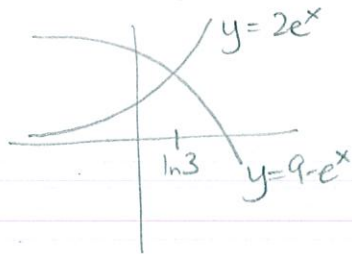 y = 2eˣ
ln3
y=9-eˣ